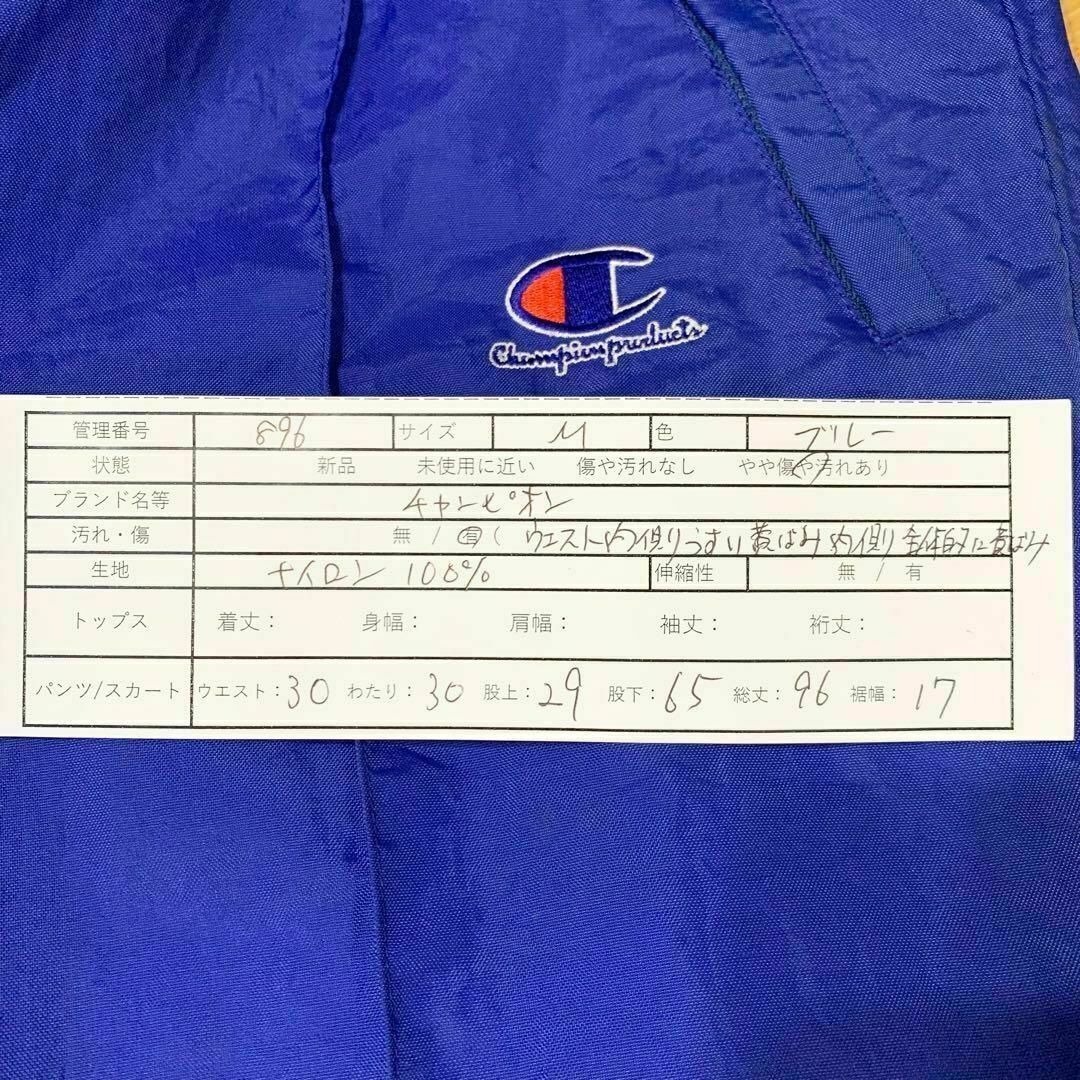 Champion products
管理番号 896 サイズ M 色 ブルー
状態 新品 未使用に近い 傷や汚れなし やや傷や汚れあり
ブランド名等 チャンピオン
汚れ・傷 無 / 有 ( ウエスト内側うすい黄ばみ 内側全体的に黄ばみ
生地 ナイロン 100% 伸縮性 無 / 有
トップス 着丈: 身幅: 肩幅: 袖丈: 裄丈:
パンツ/スカート ウエスト:30 わたり:30 股上:29 股下:65 総丈:96 裾幅:17